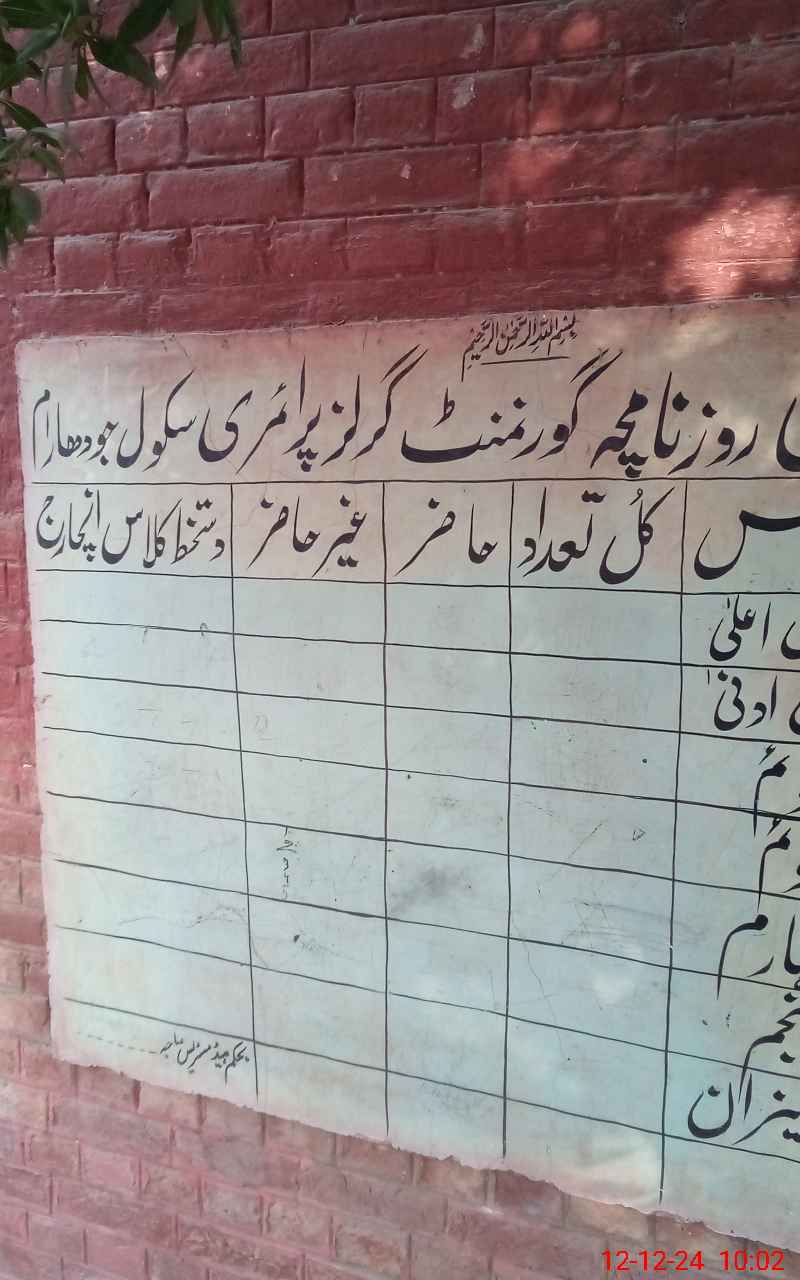 بِسْمِ اللہِ الرَّحْمٰنِ الرَّحِیْمِ
ی روزنامچہ گورنمنٹ گرلز پرائمری سکول جودھارام
س کلُ تعداد حاضر غیر حاضر دستخط کلاس انچارج
ی اعلیٰ
ی ادنیٰ
وئم
وئم
ہارم
نجم
یزان
بحکم ہیڈ مسٹریس صاحبہ
12-12-24 10:02